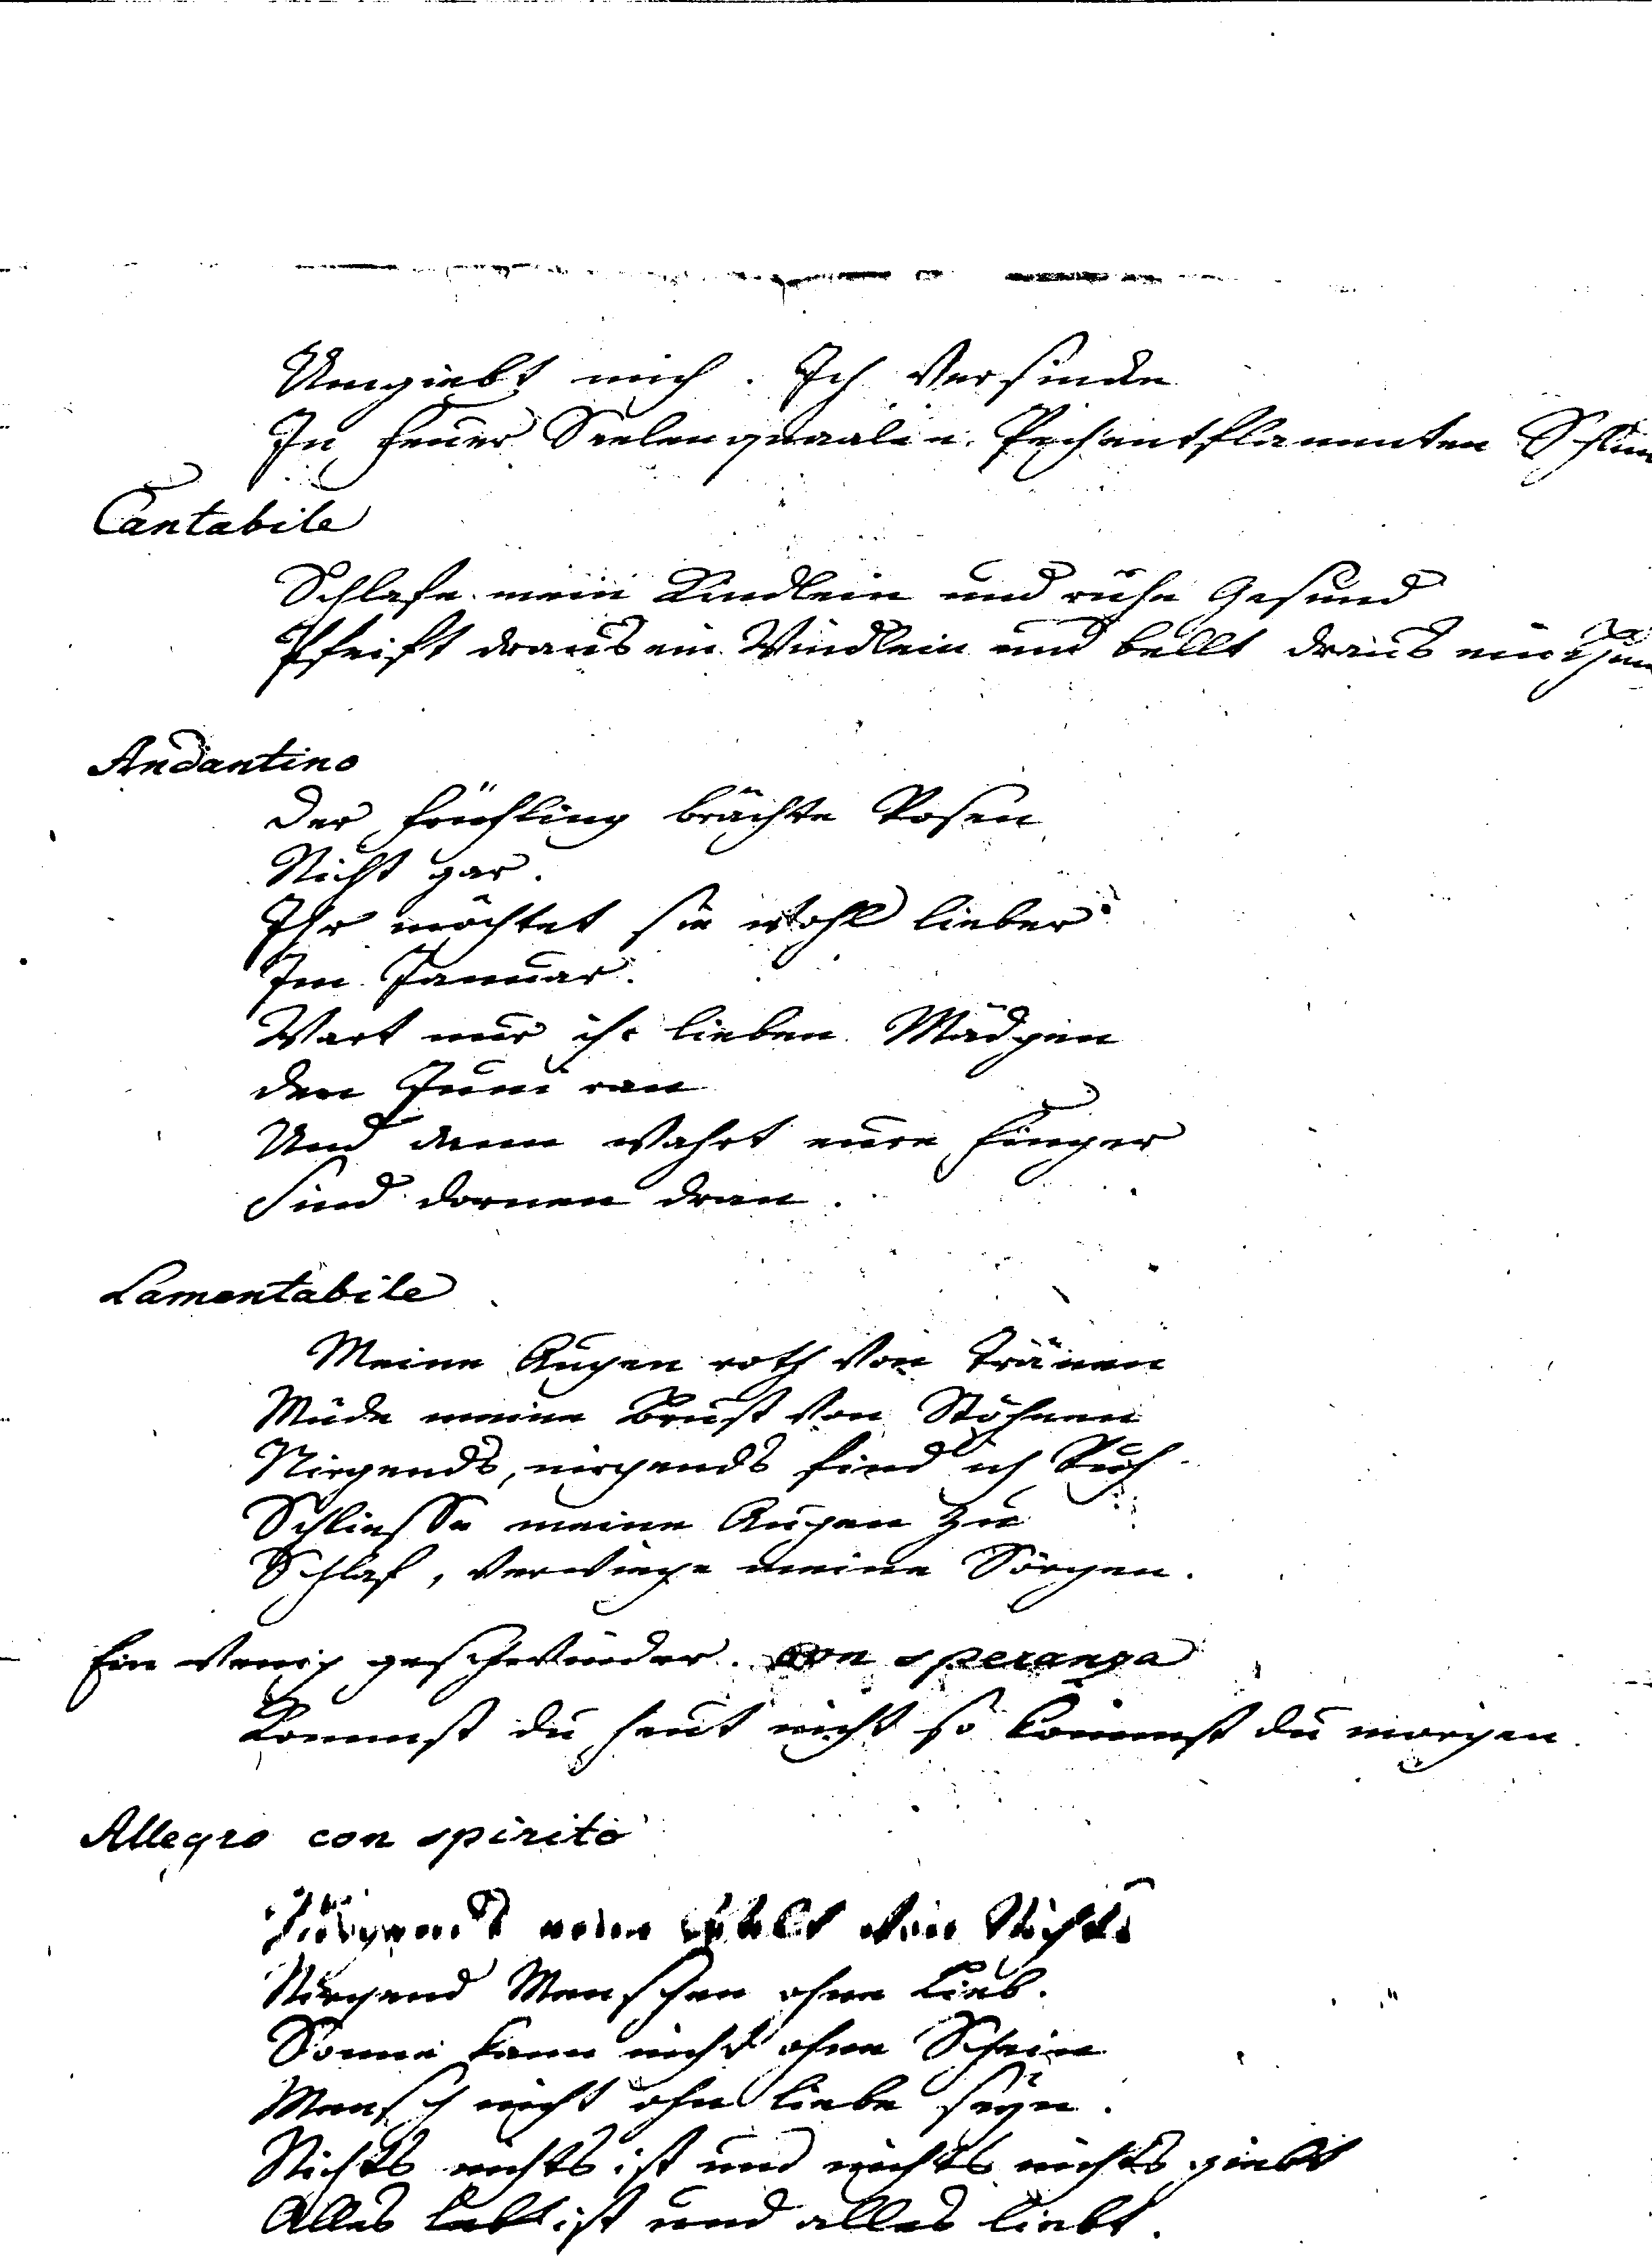 Umgiebt mich. Ich versinke
In Feuer Seelenquaal u. Pechentflammten
Cantabile
Schlafe mein Kindlein und ruhe Gesund
Pfeift draus ein Windlein und bellt draus ein Hund
Andantino
Der Frühling brächte Rosen
Nicht gar.
Ihr möchtet sie wohl lieber
Im Januar.
Wart nur ihr lieben Mädgen
den Juni ran
Und denn wahrt eure Finger
Sind dornen dran.
Lamentabile
Meine Augen roth von Tränen
Müde meine Brust von Stöhnen
Nirgends, nirgends find ich Ruh
Schliesse meine Augen zu
Schlaf, verwiege meine Sorgen.
Ein wenig geschwinder. con speranza
Kommst du heut nicht so kommst du morgen.
Allegro con spirito
von Nichts
Nirgend Menschen ohne Lieb.
Sonne kann nicht ohne Schein
Mensch nicht ohn Liebe seyn.
Nichts nichts ist und nichts nichts giebt
Alles ist und alles liebt.